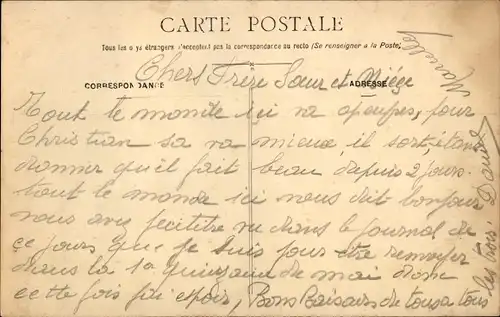 CARTE POSTALE
Tous les pays étrangers n'acceptent pas la correspondance au recto (Se renseigner à la Poste)
CORRESPONDANCE
ADRESSE
Chers Frere Sœur et Niéçe
Tout le monde içi va apeupres, pour
Christian sa va mieux, il sort étant
donner qu'il fait beau depuis 2 jours.
tout le monde ici nous dit bonjour
nous avez peutitre vu dans le journal de
çe jours que je suis pour être renvoyer
dans la 1e quinzaine de mai donc
cette fois j'ai espoir, Bons Baisers de tous a tous
les trois